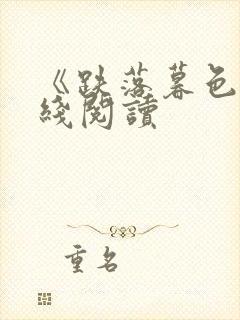 《跌落暮色
綫閱讀
重名